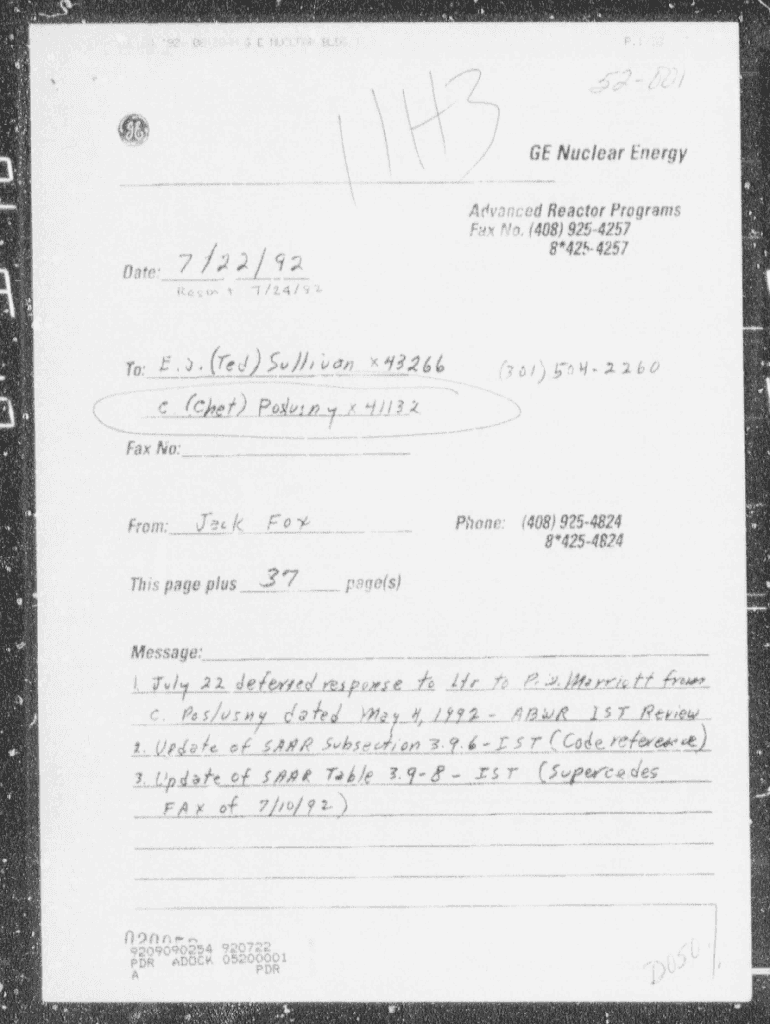 G E NUCLEAR BLDG
52-001
11H3
GE Nuclear Energy
Advanced Reactor Programs
Fax No. (408) 925-4257
8*425-4257
Date: 7/22/92
7/24/92
To: E. J. (Ted) Sullivan x43266 (301) 504-2260
C. (Chet) Poslusny x 41132
Fax No:
From: Jack Fox Phone: (408) 925-4824
8*425-4824
This page plus 37 page(s)
Message:
1. July 22 deferred response to Ltr to P.W. Marriott from
C. Poslusny dated May 4, 1992 - ABWR IST Review
2. Update of SAAR Subsection 3.9.6 - IST (Code reference)
3. Update of SAAR Table 3.9-8 - IST (Supercedes
FAX of 7/10/92)
9209090254 920722
PDR ADOCK 05200001
A PDR
D050